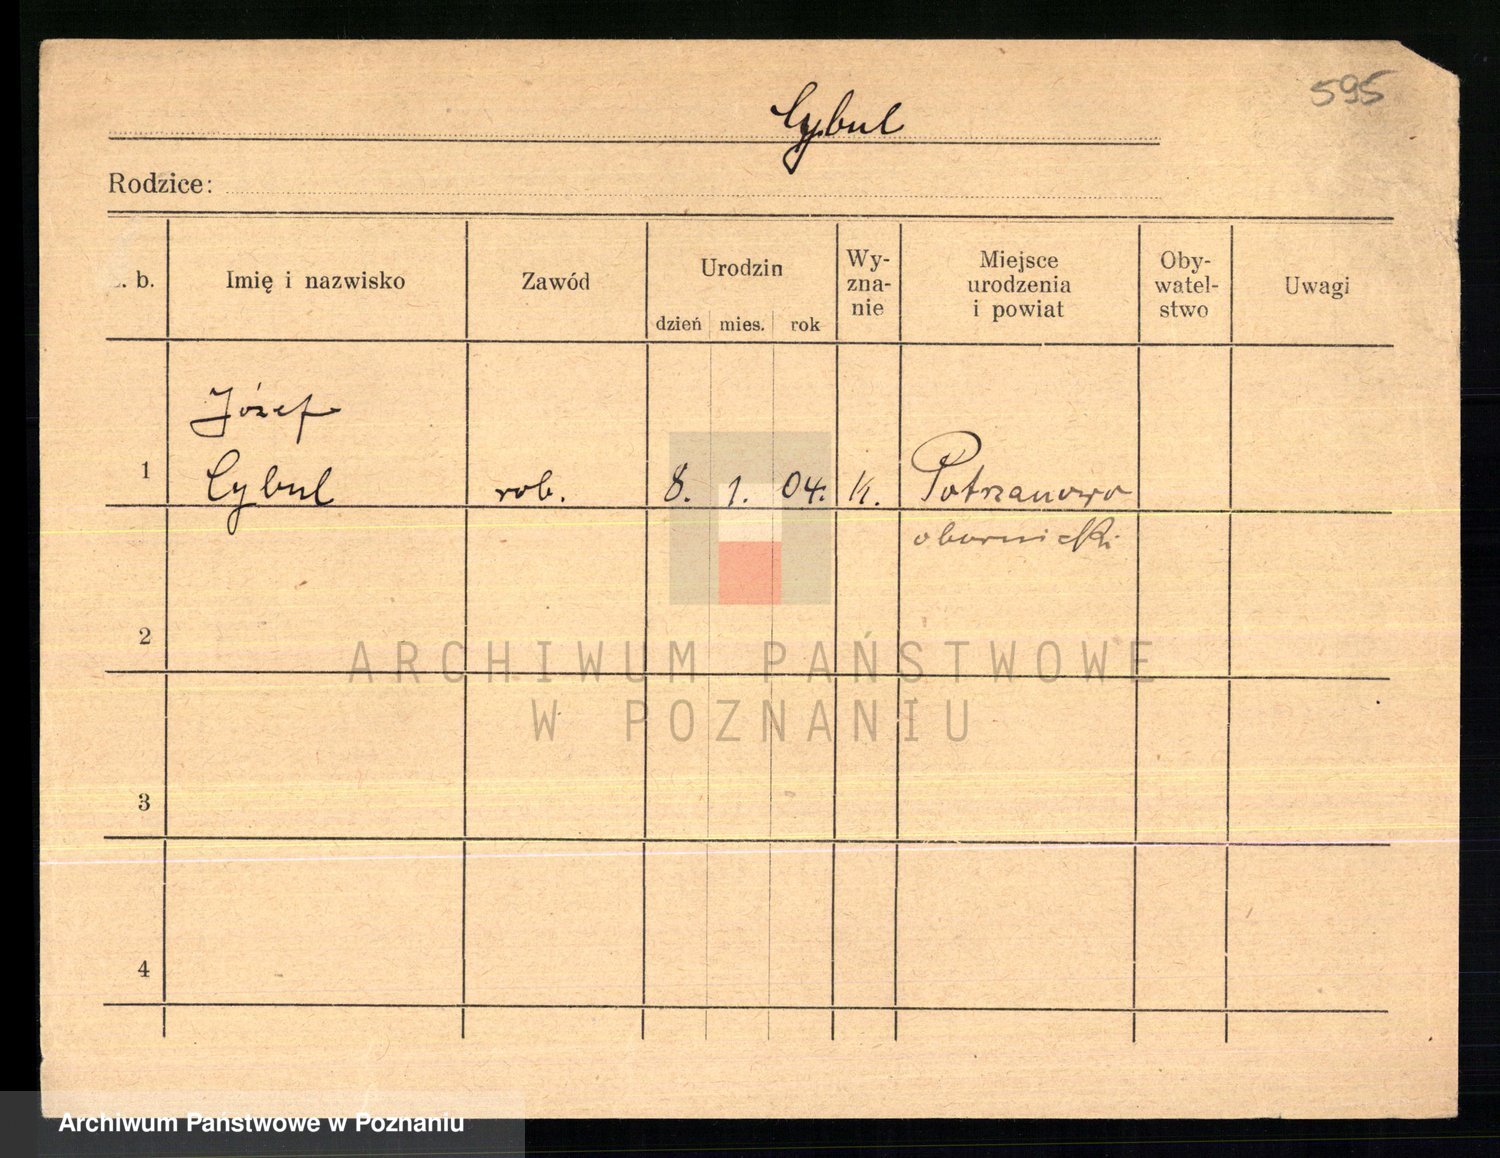 595
Cybul
Rodzice:
. b.
Imię i nazwisko
Zawód
Urodzin
dzień mies. rok
Wy-
zna-
nie
Miejsce
urodzenia
i powiat
Oby-
watel-
stwo
Uwagi
Józef
1 Cybul rob. 8. 1. 04. k. Potrzanowo
obornicki
2
3
4
ARCHIWUM PAŃSTWOWE
W POZNANIU
Archiwum Państwowe w Poznaniu